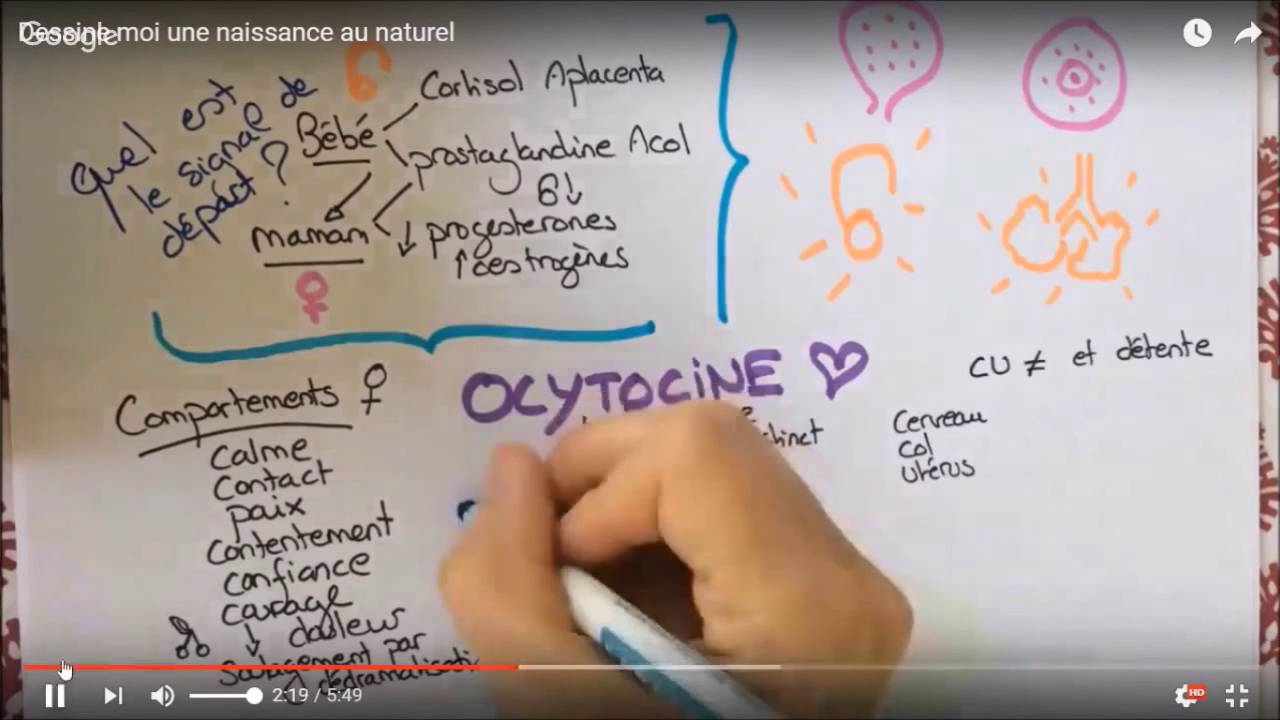 Dessine moi une naissance au naturel
Google
Quel est
le signal de
départ ?
Bébé
Cortisol Aplacenta
prostaglandine Acol
6↓
mamam
↓ progesterones
↑ oestrogènes
Comportements ♀
calme
contact
paix
contentement
confiance
courage
↓ douleur
Soulagement par
OCYTOCINE
CU ≠ et détente
Cerveau
col
utérus
2:19 / 5:49
HD